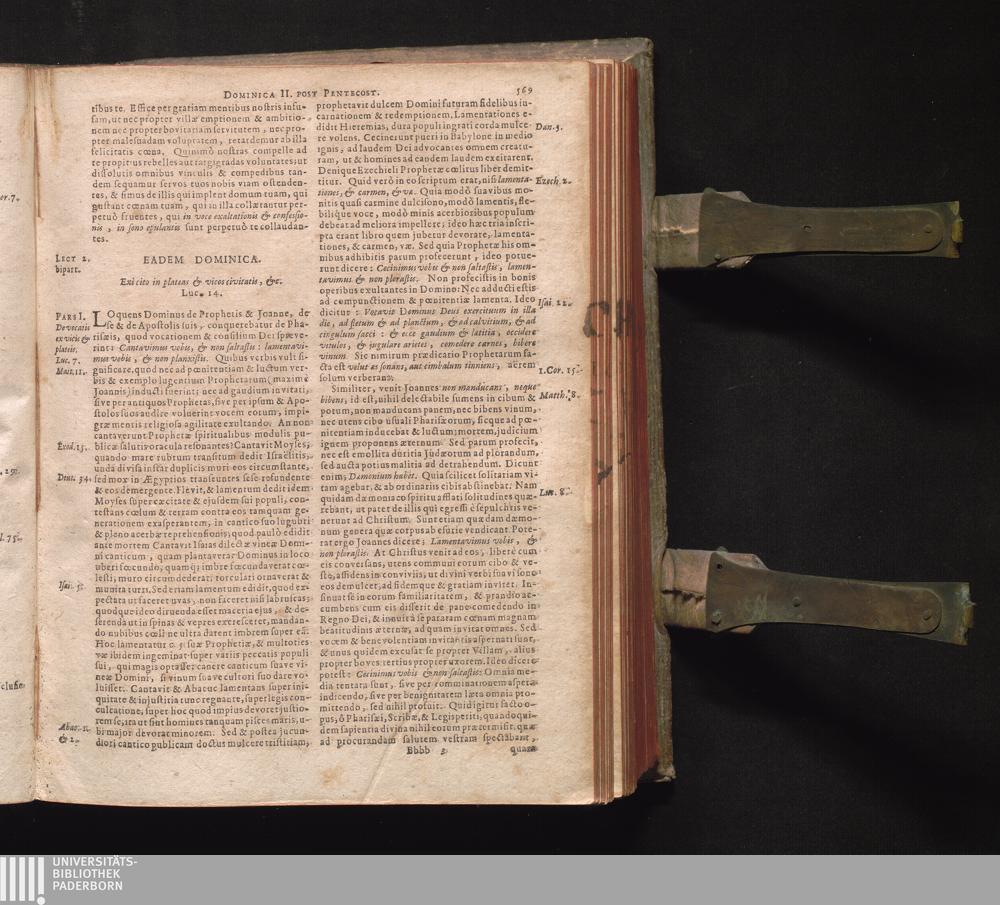 DOMINICA II. POST PENTECOST. 569
tibus te. Effice per gratiam mentibus nostris infu-
sam, ut nec propter villæ emptionem & ambitio-
nem nec propter bovitariam servitutem, nec pro-
pter malesuadam voluptatem, retardemur ab illa
felicitatis cœna. Quinimò nostras compelle ad
te propitius rebelles aut targigradas voluntates: ut
dissolutis omnibus vinculis & compedibus tan-
dem sequamur servos tuos nobis viam ostenden-
tes, & simus de illis qui implent domum tuam, qui
gustant cœnam tuam, qui in illa collætantur per-
petuò fruentes, qui in voce exaltationis & confessio-
nis, in sono epulantis sunt perpetuò te collaudan-
tes.
Lect 2.
bipart.
EADEM DOMINICA.
Exi cito in plateas & vicos civitatis, &c.
Luc. 14.
Pars I.
De vocatis
ex vicis &
plateis.
Luc. 7.
Matt. 11.
LOquens Dominus de Prophetis & Joanne, de
se & de Apostolis suis, conquerebatur de Pha-
risæis, quod vocationem & consilium Dei spreve-
rint: Cantavimus vobis, & non saltastis: lamentavi-
mus vobis, & non planxistis. Quibus verbis vult si-
gnificare, quod nec ad pœnitentiam & luctum ver-
bis & exemplo lugentium Prophetarum (maximè
Joannis) inducti fuerint; nec ad gaudium invitati,
sive per antiquos Prophetas, sive per ipsum & Apo-
stolos suos audire voluerint vocem eorum, impi-
græ mentis religiosa agilitate exultando. An non
cantaverunt Prophetæ spiritualibus modulis pu-
Exod. 15.
blicæ salutis oracula resonantes? Cantavit Moyses,
quando mare rubrum transitum dedit Israëlitis,
unda divisa instar duplicis muri eos circumstante,
Deut. 34.
sed mox in Ægyptios transeuntes sese refundente
& eos demergente. Flevit, & lamentum dedit idem
Moyses super cæcitate & ejusdem sui populi, con-
testans cœlum & terram contra eos tamquam ge-
nerationem exasperantem, in cantico suo lugubri
& pleno acerbæ reprehensionis; quod paulò edidit
ante mortem Cantavit Isaias dilectæ vineæ Domi-
ni canticum, quam plantaverat Dominus in loco
uberi fœcundo, quamq; imbre fœcundaverat cœ-
lesti; muro circumdederat; torculari ornaverat &
Isai. 5.
munita turri. Sed etiam lamentum edidit, quod ex-
pectata ut faceret uvas, non faceret nisi labruscas;
quodque ideo diruenda esset maceria ejus, & de-
serenda ut in spinas & vepres excresceret, mandan-
do nubibus cœli ne ultra darent imbrem super eã.
Hoc lamentatur c. 5. suæ Prophetiæ, & multoties
væ ibidem ingeminat super variis peccatis populi
sui, qui magis optasset canere canticum suave vi-
neæ Domini, si vinum suave cultori suo dare vo-
luisset. Cantavit & Abacuc lamentans super ini-
quitate & injustitia tunc regnante, super legis con-
culcatione, super hoc quod impius devoret justio-
rem se, ita ut sint homines tanquam pisces maris, u-
Abac. 1.
& 2.
bi major devorat minorem. Sed & postea jucun-
diori cantico publicam doctus mulcere tristitiam,
prophetavit dulcem Domini futuram fidelibus in-
carnationem & redemptionem. Lamentationes e-
didit Hieremias, dura populi ingrati corda mulce-
Dan. 3.
re volens. Cecinerunt pueri in Babylone in medio
ignis, ad laudem Dei advocantes omnem creatu-
ram, ut & homines ad eandem laudem excitarent.
Denique Ezechieli Prophetæ cœlitus liber demit-
Ezech. 2.
titur. Quid verò in eo scriptum erat, nisi lamenta-
tiones, & carmen, & væ. Quia modò suavibus mo-
nitis quasi carmine dulcisono, modò lamentis, fle-
bilique voce, modò minis acerbioribus populum
debeat ad meliora impellere; ideo hæc tria inscri-
pta erant libro quem jubetur devorare, lamenta-
tiones, & carmen, væ. Sed quia Prophetæ his om-
nibus adhibitis parum profecerunt, ideo potue-
runt dicere: Cecinimus vobis & non saltastis, lamen-
tavimus & non plorastis. Non profecistis in bonis
operibus exultantes in Domino: Nec adducti estis
ad compunctionem & pœnitentiæ lamenta. Ideo
Isai. 22.
dicitur: Vocavis Dominus Deus exercituum in illa
die, ad fletum & ad planctum, & ad calvitium, & ad
cingulum sacci: & ecce gaudium & lætitia, occidere
vitulos, & jugulare arietes, comedere carnes, bibere
vinum. Sic nimirum prædicatio Prophetarum fa-
1. Cor. 13.
cta est velut æs sonans, aut cimbalum tinniens, aërem
solum verberans.
Similiter, venit Joannes non manducans, neque
Matth. 8.
bibens, id est, nihil delectabile sumens in cibum &
potum, non manducans panem, nec bibens vinum,
nec utens cibo usuali Pharisæorum, sicque ad pœ-
nitentiam inducebat & luctum; mortem, judicium
ignem proponens æternum. Sed parum profecit,
nec est emollita duritia Judæorum ad plorandum,
sed aucta potius malitia ad detrahendum. Dicunt
enim; Dæmonium habet. Quia scilicet solitariam vi-
tam agebat, & ab ordinariis cibis abstinebat. Nam
Luc. 8.
quidam dæmoniaco spiritu afflati solitudines quæ-
rebant, ut patet de illis qui egressi è sepulchris ve-
nerunt ad Christum. Sunt etiam quædam dæmo-
num genera quæ corpus ab esurie vendicant. Pote-
rat ergo Joannes dicere; Lamentavimus vobis, &
non plorastis. At Christus venit ad eos, liberè cum
eis conversans, utens communi eorum cibo & ve-
sto, assidens in conviviis, ut divini verbi suavi sono
eos demulcet; ad fidemque & gratiam invitet. In-
sinuat se in eorum familiaritatem, & prandio ac-
cumbens cum eis disserit de pane comedendo in
Regno Dei, & innuit à se paratam cœnam magnam
beatitudinis æternæ, ad quam invitat omnes. Sed
vocem & benevolentiam invitantis aspernati sunt,
& unus quidem excusat se propter Villam, alius
propter boves, tertius propter uxorem. Ideo dicere
potest: Cecinimus vobis & non saltastis: Omnia me-
dia tentata sunt, sive per comminationem aspera
indicendo, sive per benignitatem læta omnia pro-
mittendo, sed nihil profuit. Quid igitur facto o-
pus, ô Pharisæi, Scribæ, & Legisperiti; quandoqui-
dem sapientia divina nihil eorum prætermisit, quæ
ad procurandam salutem vestram spectabant,
Bbbb 3 quam
or. 7.
. 29.
l. 75.
clusis
CH
UNIVERSITÄTS-
BIBLIOTHEK
PADERBORN